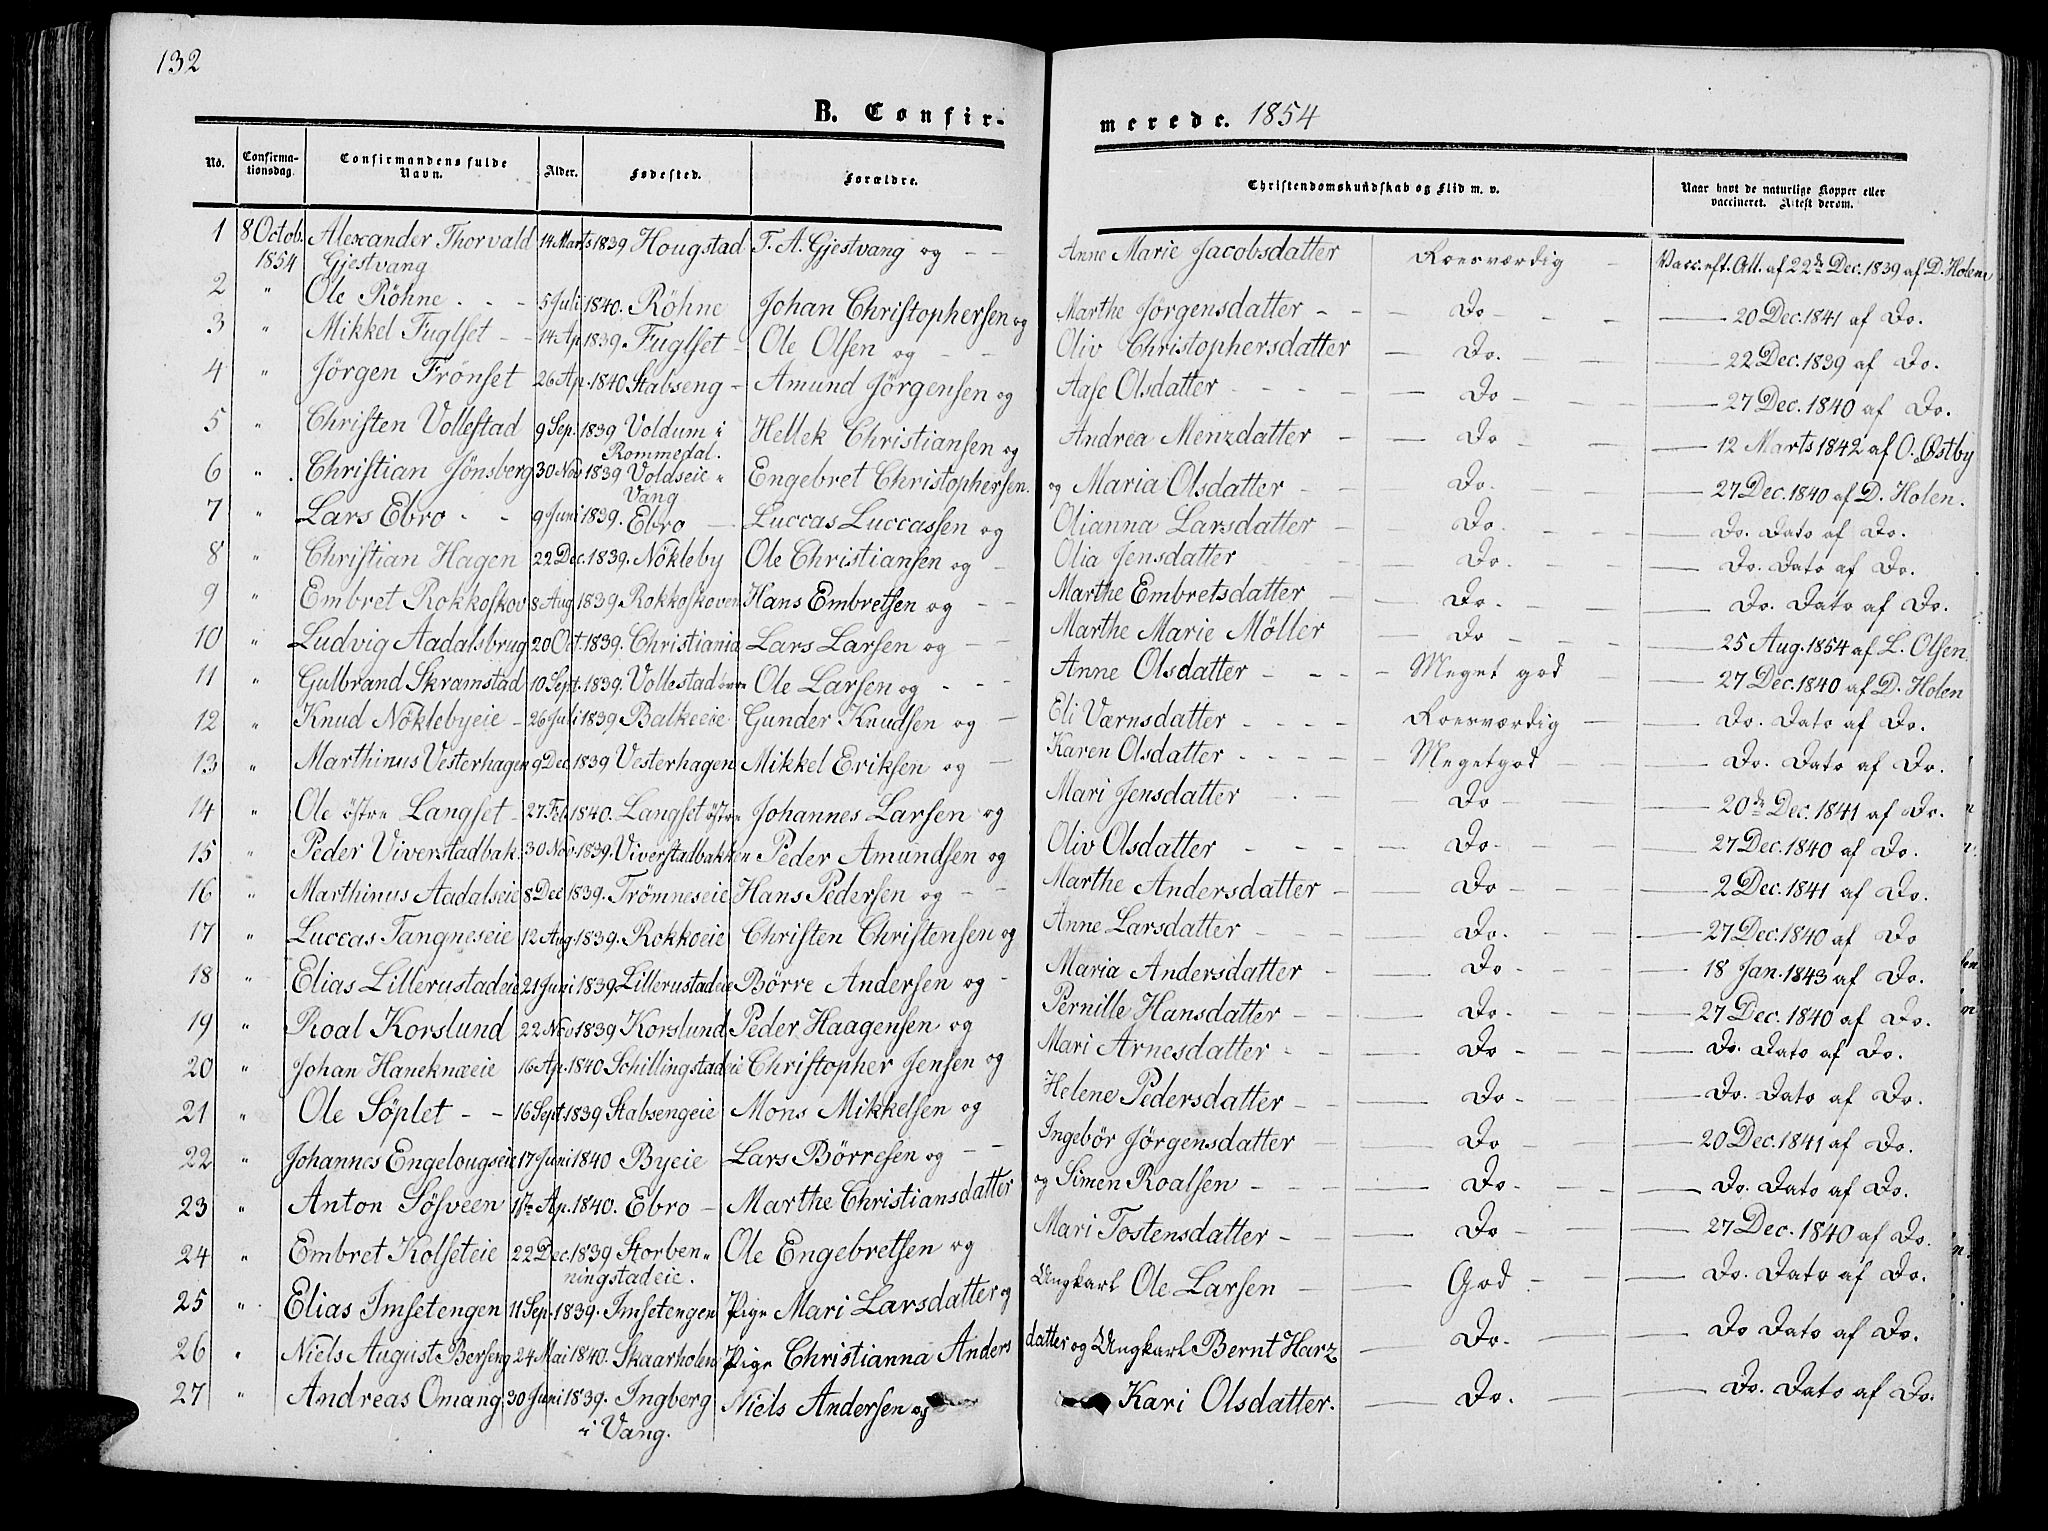 132
B. Confir-
merede. 1854
No. Confirma- Confirmandens fulde Alder. Fødested. Forældre. Christendomskundskab og Flid m. v. Naar havt de naturlige Kopper eller
tionsdag. Navn. vaccineret. Attest derom.
1 8 Octob. Alexander Thorvald 14 Marts 1839 Hougstad F. A. Gjestvang og - - Anne Marie Jacobsdatter Roesværdig - Vacc. eft. Att. af 22de Dec. 1839 af D. Holen
1854 Gjestvang
2 " Ole Röhne - - - 5 Juli 1840. Röhne Johan Christophersen og Marthe Jörgensdatter - - - Do - - - 20 Dec. 1841 af Do.
3 " Mikkel Fuglset - - 14 Ap. 1839. Fuglset - Ole Olsen og - - Oliv Christophersdatter - Do. - - - 22 Dec. 1839 af Do.
4 " Jörgen Frönset 26 Ap. 1840. Stabseng - Amund Jörgensen og Aase Olsdatter - - - Do - - - 27 Dec. 1840 af Do.
5 " Christen Vollestad 9 Sep. 1839 Voldum i Hellek Christiansen og Andrea Menzdatter - - Do - - 12 Marts 1842 af O. Østby
Rommedal.
6 " Christian Jönsberg 30 Nov 1839 Voldseie " Engebret Christophersen. og Maria Olsdatter - - Do. - - 27 Dec. 1840 af D. Holen.
Vang
7 " Lars Ebro - - 9 Juni 1839. Ebro - Luccas Luccassen og Olianna Larsdatter - - Do. - - - Do. Dato af Do.
8 " Christian Hagen 22 Dec. 1839. Nökleby Ole Christiansen og - Olia Jensdatter - - - Do. - - - Do. Dato af Do.
9 " Embret Rokkoskov 8 Aug 1839. Rokkoskoven Hans Embretsen og - - Marthe Embretsdatter - - Do. - - - Do. Dato af Do.
10 " Ludvig Aadalsbrug 20 Oct. 1839. Christiania Lars Larsen og - Marthe Marie Möller - Do - - - 25 Aug. 1854 af L. Olsen.
11 " Gulbrand Skramstad 10 Sept. 1839. Vollestad övre Ole Larsen og - - - Anne Olsdatter - - - - Meget god - 27 Dec. 1840 af D. Holen
12 " Knud Nöklebyeie - 26 Juli 1839 Balkeeie Gunder Knudsen og - Eli Værnsdatter - - - - Roesværdig - - Do. Dato af Do.
13 " Marthinus Vesterhagen 9 Dec. 1839 Vesterhagen Mikkel Eriksen og - Karen Olsdatter - - - - - Megetgod - - - Do. Dato af Do.
14 " Ole östre Langset - 27 Feb. 1840. Langset östre Johannes Larsen og Mari Jensdatter - - - Do - - - 20de Dec. 1841 af Do.
15 " Peder Viverstadbak. 30 Nov. 1839. Viverstalbakken Peder Amundsen og Oliv Olsdatter - - - - Do - - - 27 Dec. 1840 af Do.
16 " Marthinus Aadalseie 8 Dec 1839. Trömneseie Hans Pedersen og - - Marthe Andersdatter - - Do - - - 2 Dec. 1841 af Do.
17 " Luccas Tangneseie 12 Aug. 1839. Rokkoeie Christen Christensen og Anne Larsdatter - - - - Do. - - - 27 Dec. 1840 af Do
18 " Elias Lillerustadeie 21 Juni 1839. Lillerustadeie Börre Andersen og - Maria Andersdatter - - Do - - - 18 Jan. 1843 af Do.
19 " Roal Korslund 22 Nov 1839 Korslund Peder Haagensen og Pernille Hansdatter - - - Do. - - - 27 Dec. 1840 af Do.
20 " Johan Haneknæeie 16 Ap. 1840 Schillingstadeie Christopher Jensen og Mari Arnesdatter - - - Do - - - Do. Dato af Do.
21 " Ole Söplet - - 16 Sept. 1839 Stabsengeie Mons Mikkelsen og Helene Pedersdatter - - - Do - - - Do. Dato af Do.
22 " Johannes Engelougseie 17 Juni 1840 Byeie Lars Börresen og - Ingebör Jörgensdatter - - Do - - - 20 Dec. 1841 af Do.
23 " Anton Sösveen 17de Ap. 1840. Ebro - Marthe Christiansdatter og Simen Roalsen - - - - Do - - - Do. Dato af Do.
24 " Embret Kolseteie 22 Dec. 1839 Storben" Ole Engebretsen og Mari Tostensdatter - - Do - - - 27 Dec. 1840 af Do.
ningstadeie.
25 " Elias Imsetengen 11 Sep. 1839. Imsetengen Pige Mari Larsdatter og Ungkarl Ole Larsen - - God - - - Do. Dato af Do.
26 " Niels August Berseng 24 Mai 1840. Skaarholen Pige Christianna Anders datter og Ungkarl Bernt Harz - Do. - - - Do Dato af Do.
27 " Andreas Omang 30 Juni 1839. Ingberg Niels Andersen og Kari Olsdatter. - Do. - - - Do. Dato af Do.
i Vang.